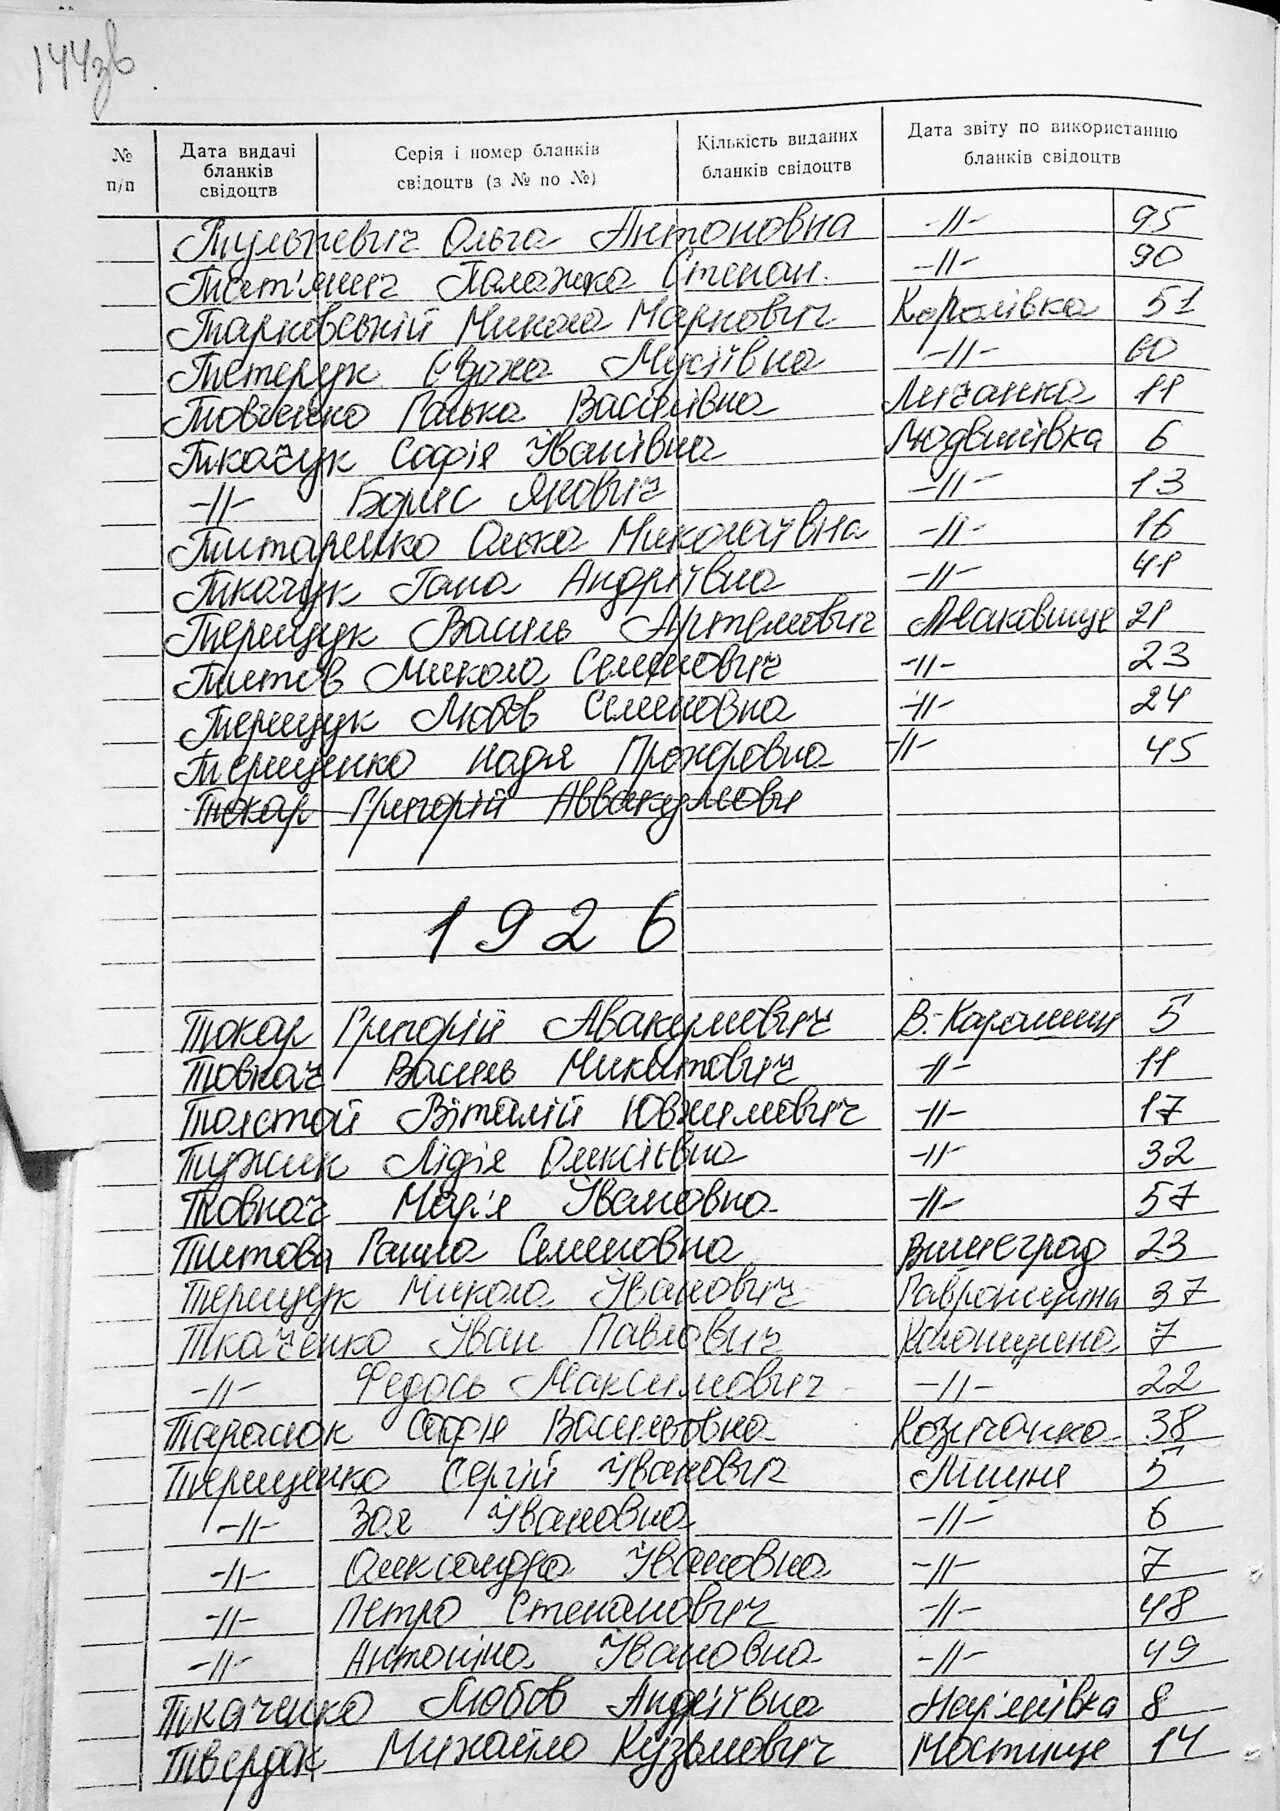 144зв
№ п/п Дата видачі бланків свідоцтв Серія і номер бланків свідоцтв (з № по №) Кількість виданих бланків свідоцтв Дата звіту по використанню бланків свідоцтв
Тулькевич Ольга Антоновна -//- 95
Тит'янич Палажка Степан. -//- 90
Тарковський Микола Маркович Королівка 51
Тетерук Євдоха Мусіївна -//- 60
Товченко Ганька Василівна Личанка 11
Ткачук Софія Іванівна Людвинівка 6
-//- Борис Якович -//- 13
Титаренко Олька Миколаївна -//- 16
Ткачук Гана Андріївна -//- 41
Терещук Василь Артемович Маковище 21
Титов Микола Семенович -//- 23
Терещук Любов Семеновна -//- 24
Терещенко Надя Прохоровна -//- 45
Токар Григорій Аввакумови
1926
Токар Григорій Авакумович В.-Карашин 5
Товкач Василь Микитович -//- 11
Толстой Віталій Ювжимович -//- 17
Тужик Лідія Олексіївна -//- 32
Товкач Марія Івановна -//- 57
Титова Ганна Семеновна Вишеград 23
Терещук Микола Іванович Гавронщина 37
Ткаченко Іван Павлович Колонщина 7
-//- Федось Максимович -//- 22
Тарасюк Софія Васильовна Козичанка 38
Терещенко Сергій Іванович Липня 5
-//- Зоя Івановна -//- 6
-//- Олександра Івановна -//- 7
-//- Петро Степанович -//- 48
-//- Антоніна Івановна -//- 49
Ткаченко Любов Андріївна Мар'янівка 8
Твердак Михайло Кузьмович Мостище 14